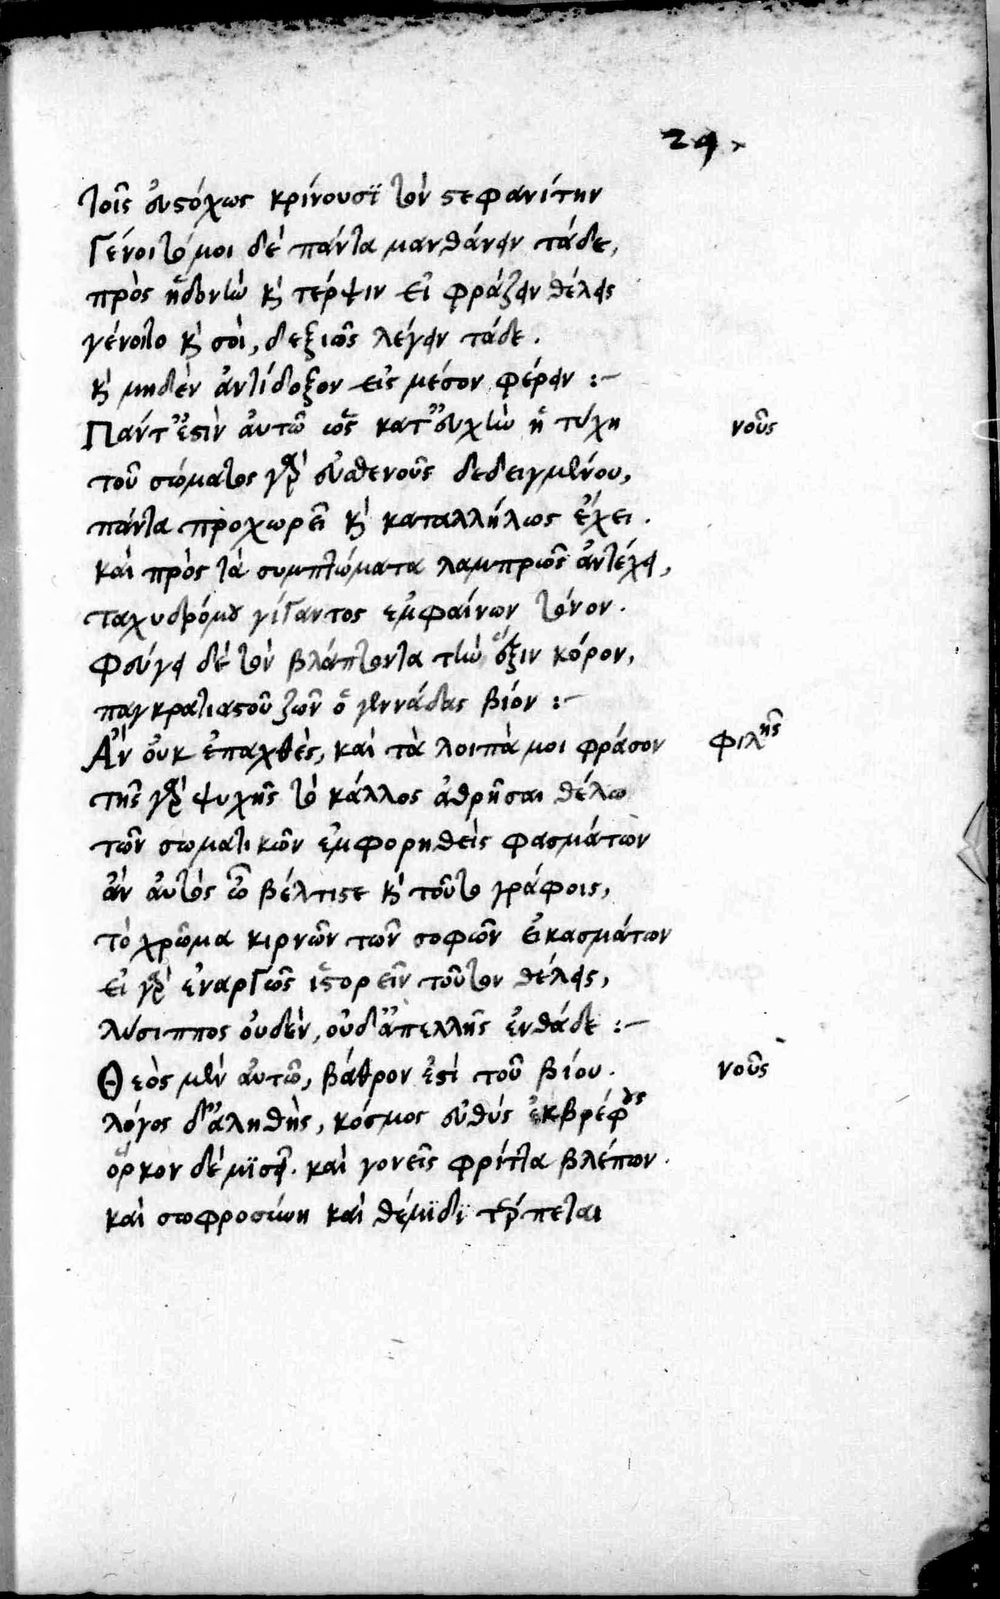 29.
τοῖς εὐστόχως κρίνουσϊ τὸν στεφανίτην
Γένοιτό μοι δὲ πάντα μανθάνειν τάδε,
πρὸς ἡδονὴν κὴ τέρψιν εἰ φράζειν θέλεις
γένοιτο κὴ σοὶ, δεξιῶς λέγειν τάδε.
κὴ μηδὲν ἀντίδοξον εἰς μέσον φέρειν :-
Πάντ' ἐστὶν αὐτῶ ὡς κατ' εὐχὴν ἡ τύχη νοῦς
τοῦ σώματος γὰρ εὐσθενοῦς δεδειγμένου,
πάντα προχωρεῖ κὴ καταλλήλως ἔχει.
καὶ πρὸς τὰ συμπτώματα λαμπρῶς ἀντέχει,
ταχυδρόμου γίγαντος ἐμφαίνων τόνον.
Φεύγει δὲ τὸν βλάπτοντα τὴν ἕξιν κόρον,
παγκρατιαστοῦ ζῶν ὁ γεννάδας βίον :-
Ἂν οὐκ ἐπαχθὲς, καὶ τὰ λοιπὰ μοι φράσον φιλης
τῆς γὰρ ψυχῆς τὸ κάλλος ἀθρῆσαι θέλω
τῶν σωματικῶν ἐμφορηθεὶς φασμάτων
ἂν αὐτὸς ὦ βέλτιστε κὴ τοῦτο γράφοις,
τὸ χρῶμα κιρνῶν τῶν σοφῶν εἰκασμάτων
εἰ γὰρ ἐναργῶς ἱστορεῖν τοῦτον θέλεις,
λύσιππος οὐδὲν, οὐδ' ἀπελλῆς ἐνθάδε :-
Θεὸς μὲν αὐτῶ, βάθρον ἐστὶ τοῦ βίου. νοῦς
λόγος δ' ἀληθὴς, κόσμος εὐθὺς ἐκ βρέφους
ὅρκον δὲ μϊσεῖ. καὶ γονεῖς φρίττα βλέπων.
καὶ σωφροσύνη καὶ θέμϊδϊ τρέπεται